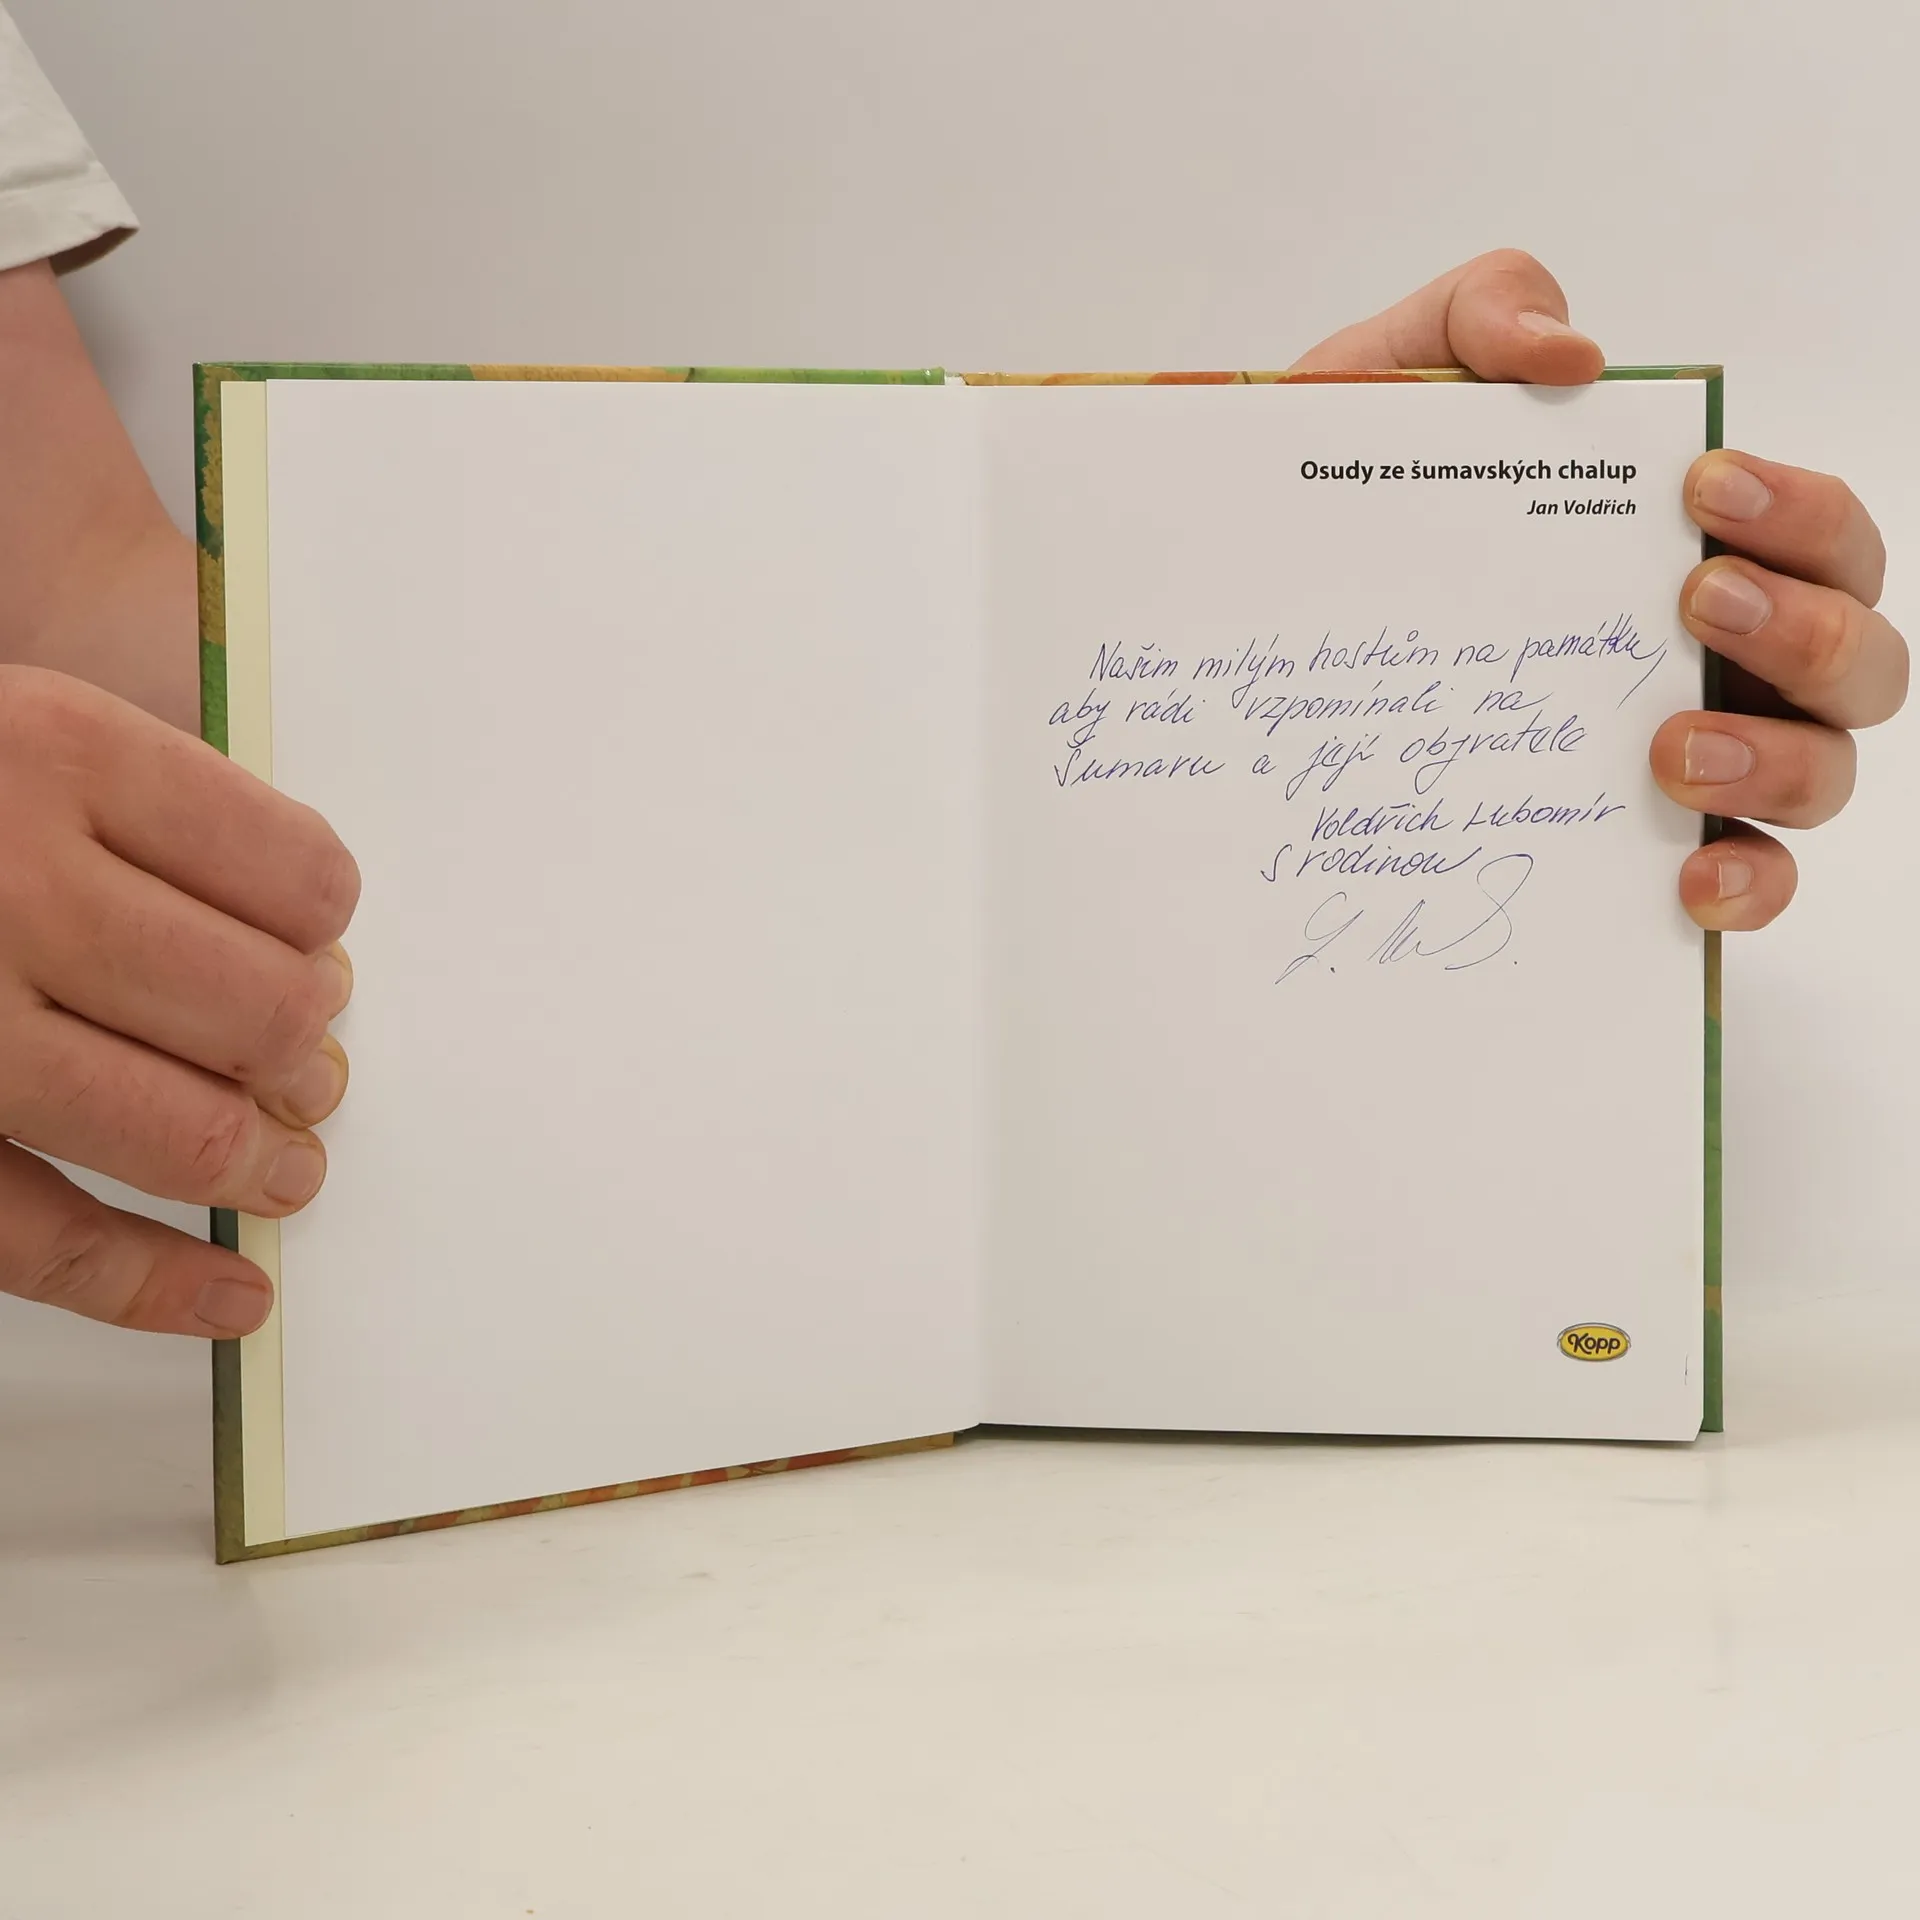 Osudy ze šumavských chalup
Jan Voldřich
Našim milým hostům na památku,
aby rádi vzpomínali na
Šumavu a její obyvatele
Voldřich Lubomír
s rodinou
Kopp